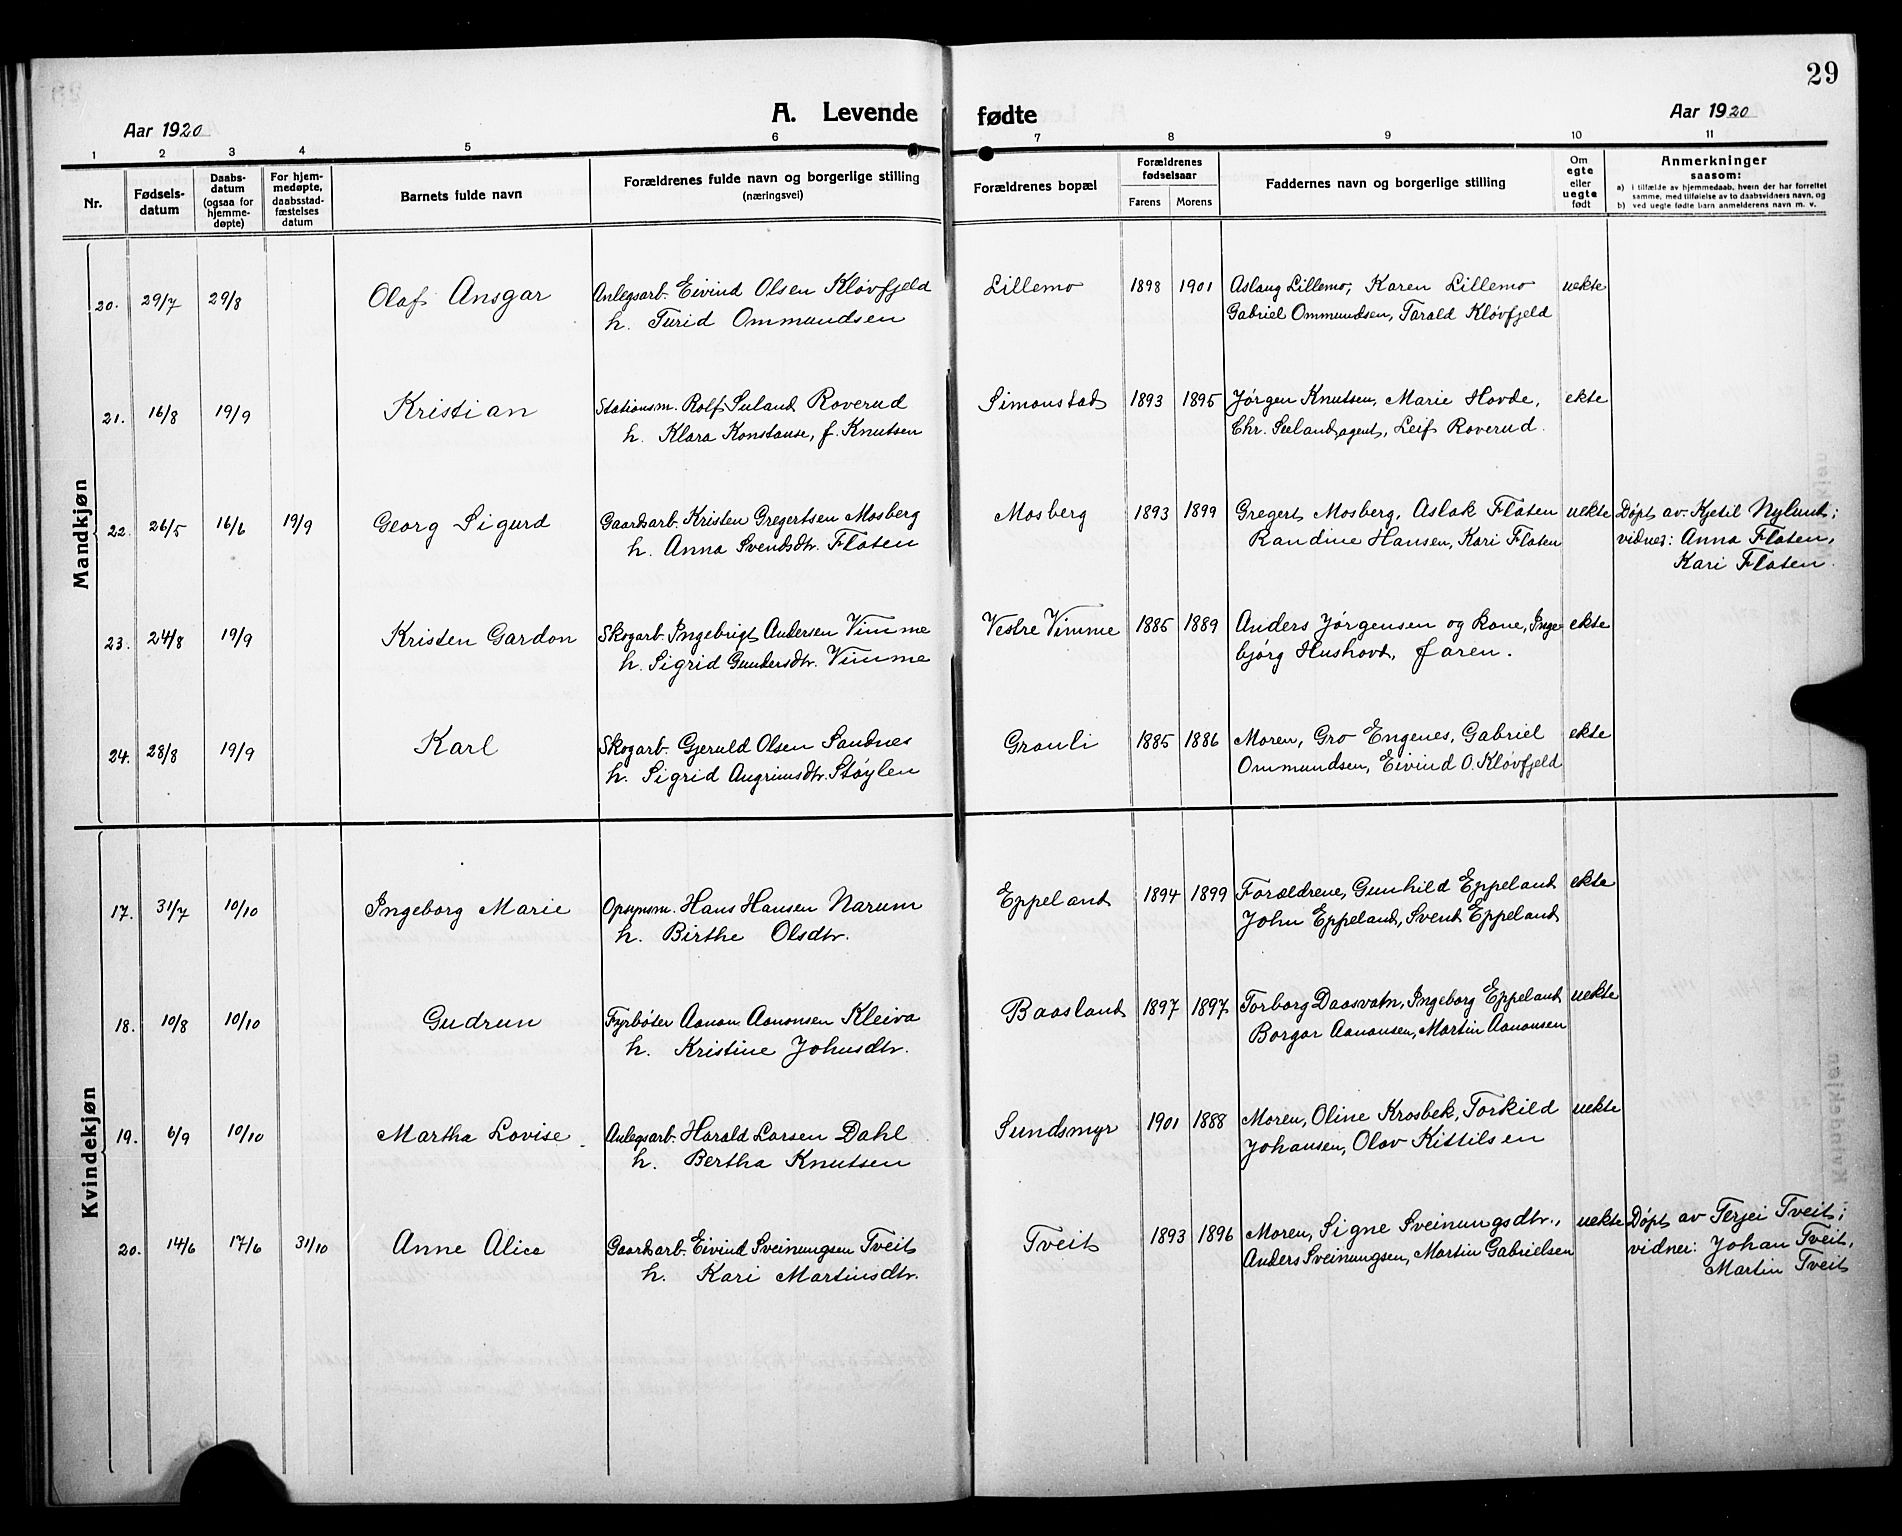 29
A. Levende fødte
Aar 1920
Aar 1920
1 2 3 4 5 6 7 8 9 10 11
Nr.
Fødsels-
datum
Daabs-
datum
(ogsaa for
hjemme-
døpte)
For hjem-
medøpte,
daabsstad-
fæstelses
datum
Barnets fulde navn
Forældrenes fulde navn og borgerlige stilling
(næringsvei)
Forældrenes bopæl
Forældrenes
fødselsaar
Farens Morens
Faddernes navn og borgerlige stilling
Om
egte
eller
uegte
født
Anmerkninger
saasom:
a) i tilfælde av hjemmedaab, hvem der har forrettet
samme, med tilføielse av to daabsvidners navn, og
b) ved uegte fødte barn anmelderens navn m. v.
Mandkjøn
20. 29/7 29/8 Olaf Ansgar Anlegsarb. Eivind Olsen Kløvfjeld Lillemo 1898 1901 Aslaug Lillemo, Karen Lillemo uekte
h. Turid Ommundsen Gabriel Ommundsen, Tarald Kløvfjeld
21. 16/8 19/9 Kristian Stationsm. Rolf Seland Roverud Simonstad 1893 1895 Jørgen Knutsen, Marie Hovde, ekte
h. Klara Konstanse, f. Knutsen Chr. Seeland, agent, Leif Roverud.
22. 26/5 16/6 19/9 Georg Sigurd Gaardsarb. Kristen Gregertsen Mosberg Mosberg 1893 1899 Gregert Mosberg, Aslak Flaten uekte Døpt av Kjetil Nylund;
h. Anna Svendsdtr. Flaten Randine Hansen, Kari Flaten vidner: Anna Flaten,
Kari Flaten.
23. 24/8 19/9 Kristen Gardon Skogarb. Ingebrigt Andersen Vimme Vestre Vimme 1885 1889 Anders Jørgensen og kone, Inge- ekte
h. Sigrid Gundersdtr. Vimme bjørg Hushovd, faren.
24. 28/8 19/9 Karl Skogarb. Gjeruld Olsen Sandnes Granli 1885 1886 Moren, Gro Engenes, Gabriel ekte
h. Sigrid Angrimsdtr. Støylen Ommundsen, Eivind O. Kløvfjeld
Kvindekjøn
17. 31/7 10/10 Ingeborg Marie Opsynsm. Hans Hansen Narum Eppeland 1894 1899 Forældrene, Gunhild Eppeland ekte
h. Birthe Olsdtr. John Eppeland, Svend Eppeland
18. 10/8 10/10 Gudrun Fyrbøter Aanon Aanonsen Kleiva Baasland 1897 1897 Torborg Daasvatn, Ingeborg Eppeland uekte
h. Kristine Johnsdtr. Borgar Aanonsen, Martin Aanonsen
19. 6/9 10/10 Martha Lovise Anlegsarb. Harald Larsen Dahl Sundsmyr 1901 1888 Moren, Oline Krosbek, Torkild uekte
h. Bertha Knutsen Johansen, Olav Kittilsen
20. 14/6 17/6 31/10 Anne Alice Gaardsarb. Eivind Sveinungsen Tveit Tveit 1893 1896 Moren, Signe Sveinungsdtr., uekte Døpt av Terjei Tveit;
h. Kari Martinsdtr. Anders Sveinungsen, Martin Gabrielsen vidner: Johan Tveit,
Martin Tveit